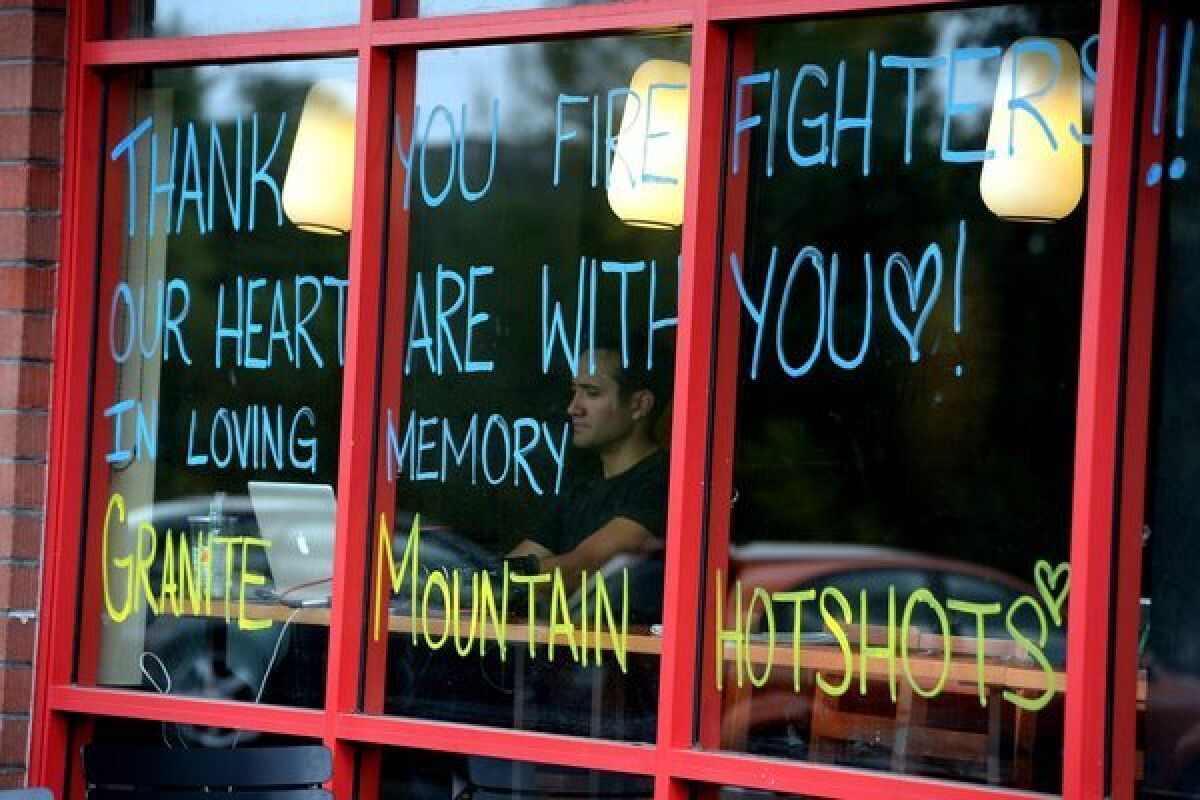 THANK YOU FIRE FIGHTERS!!
OUR HEART ARE WITH YOU♡!
IN LOVING MEMORY
GRANITE MOUNTAIN HOTSHOTS♡